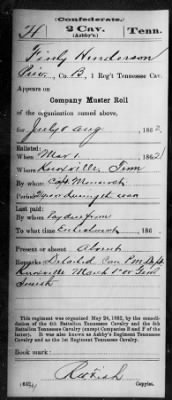 (Confederate.)
H 2 Cav. Tenn.
(Ashby's)
Henderson
Priv., Co. B, 1 Reg't Tennessee Cav.
Appears on
Company Muster Roll
of the organization named above,
for July & Aug, 1862.
Enlisted:
When Mar 1, 1862
Where Knoxville Tenn
By whom Capt
Period during the war
Last paid:
By whom
To what time 186
Present or absent Absent
Remarks: Detached
Knoxville March 1st
This regiment was organized May 24, 1862, by the consolidation of the 4th Battalion Tennessee Cavalry and the 5th Battalion Tennessee Cavalry (except Companies B and F of the latter). It was also known as Ashby's Regiment Tennessee Cavalry and as the 1st Regiment Tennessee Cavalry.
Book mark:
(642)
Copyist.